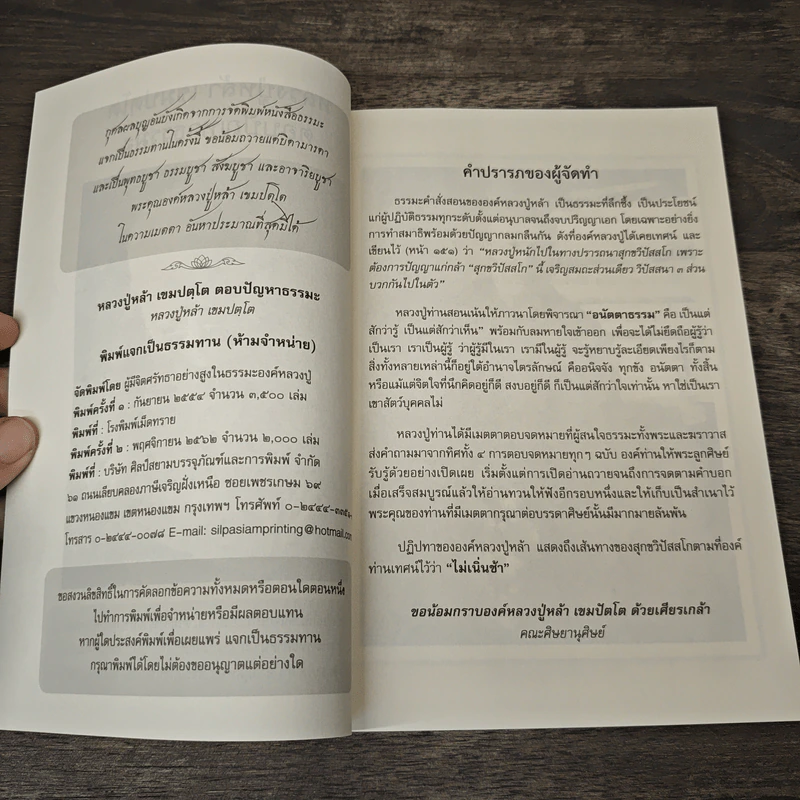 กุศลผลบุญอันบังเกิดจากการจัดพิมพ์หนังสือธรรมะ
แจกเป็นธรรมทานในครั้งนี้ ขอน้อมถวายแด่บิดามารดา
และเป็นพุทธบูชา ธรรมบูชา สังฆบูชา และอาจาริยบูชา
พระคุณองค์หลวงปู่หล้า เขมปตฺโต
ในความเมตตา อันหาประมาณที่สุดมิได้
หลวงปู่หล้า เขมปตฺโต ตอบปัญหาธรรมะ
หลวงปู่หล้า เขมปตฺโต
พิมพ์แจกเป็นธรรมทาน (ห้ามจำหน่าย)
จัดพิมพ์โดย ผู้มีจิตศรัทธาอย่างสูงในธรรมะองค์หลวงปู่
พิมพ์ครั้งที่ ๑ : กันยายน ๒๕๕๔ จำนวน ๓,๕๐๐ เล่ม
พิมพ์ที่ : โรงพิมพ์เม็ดทราย
พิมพ์ครั้งที่ ๒ : พฤศจิกายน ๒๕๖๒ จำนวน ๒,๐๐๐ เล่ม
พิมพ์ที่ : บริษัท ศิลป์สยามบรรจุภัณฑ์และการพิมพ์ จำกัด
๖๑ ถนนเลียบคลองภาษีเจริญฝั่งเหนือ ซอยเพชรเกษม ๖๙
แขวงหนองแขม เขตหนองแขม กรุงเทพฯ โทรศัพท์
โทรสาร ๐-๒๔๔๔-๐๐๗๘ E-mail: silpasiamprinting@hotmail.com
ขอสงวนลิขสิทธิ์ในการคัดลอกข้อความทั้งหมดหรือตอนใดตอนหนึ่ง
ไปทำการพิมพ์เพื่อจำหน่ายหรือมีผลตอบแทน
หากผู้ใดประสงค์พิมพ์เพื่อเผยแพร่ แจกเป็นธรรมทาน
กรุณาพิมพ์ได้โดยไม่ต้องขออนุญาตแต่อย่างใด
คำปรารภของผู้จัดทำ
ธรรมะคำสั่งสอนขององค์หลวงปู่หล้า เป็นธรรมะที่ลึกซึ้ง เป็นประโยชน์
แก่ผู้ปฏิบัติธรรมทุกระดับตั้งแต่อนุบาลจนถึงจบปริญญาเอก โดยเฉพาะอย่างยิ่ง
การทำสมาธิพร้อมด้วยปัญญากลมกลืนกัน ดังที่องค์หลวงปู่ได้เคยเทศน์ และ
เขียนไว้ (หน้า ๑๕๑) ว่า “หลวงปู่หนักไปในทางปรารถนาสุกขวิปัสสโก เพราะ
ต้องการปัญญาแก่กล้า “สุกขวิปัสสโก” นี้ เจริญสมถะส่วนเดียว วิปัสสนา ๓ ส่วน
บวกกันไปในตัว”
หลวงปู่ท่านสอนเน้นให้ภาวนาโดยพิจารณา “อนัตตาธรรม” คือ เป็นแต่
สักว่ารู้ เป็นแต่สักว่าเห็น” พร้อมกับลมหายใจเข้าออก เพื่อจะได้ไม่ยึดถือผู้รู้ว่า
เป็นเรา เราเป็นผู้รู้ ว่าผู้รู้มีในเรา เรามีในผู้รู้ จะรู้หยาบรู้ละเอียดเพียงไรก็ตาม
สิ่งทั้งหลายเหล่านี้ก็อยู่ใต้อำนาจไตรลักษณ์ คืออนิจจัง ทุกขัง อนัตตา ทั้งสิ้น
หรือแม้แต่จิตใจที่นึกคิดอยู่ก็ดี สงบอยู่ก็ดี ก็เป็นแต่สักว่าใจเท่านั้น หาใช่เป็นเรา
เขาสัตว์บุคคลไม่
หลวงปู่ท่านได้มีเมตตาตอบจดหมายที่ผู้สนใจธรรมะทั้งพระและฆราวาส
ส่งคำถามมาจากทิศทั้ง ๔ การตอบจดหมายทุกๆ ฉบับ องค์ท่านให้พระลูกศิษย์
รับรู้ด้วยอย่างเปิดเผย เริ่มตั้งแต่การเปิดอ่านถวายจนถึงการจดตามคำบอก
เมื่อเสร็จสมบูรณ์แล้วให้อ่านทวนให้ฟังอีกรอบหนึ่งและให้เก็บเป็นสำเนาไว้
พระคุณของท่านที่มีเมตตากรุณาต่อบรรดาศิษย์นั้นมีมากมายล้นพ้น
ปฏิปทาขององค์หลวงปู่หล้า แสดงถึงเส้นทางของสุกขวิปัสสโกตามที่องค์
ท่านเทศน์ไว้ว่า “ไม่เนิ่นช้า”
ขอน้อมกราบองค์หลวงปู่หล้า เขมปัตโต ด้วยเศียรเกล้า
คณะศิษยานุศิษย์